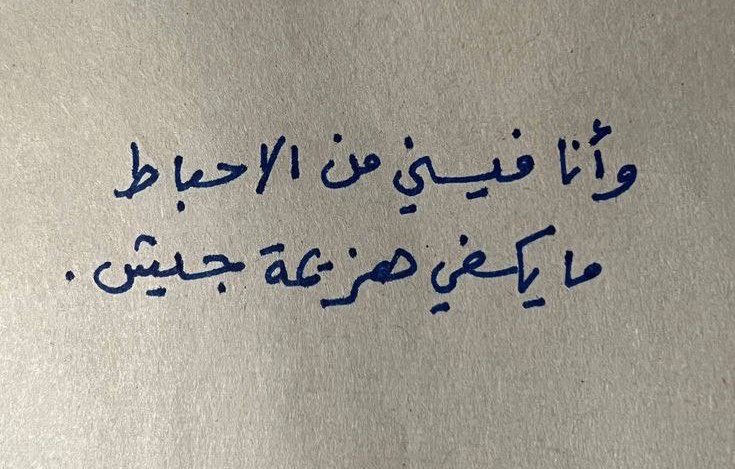 وأنا فيني من الاحباط
ما يكفي هزيمة جيش .